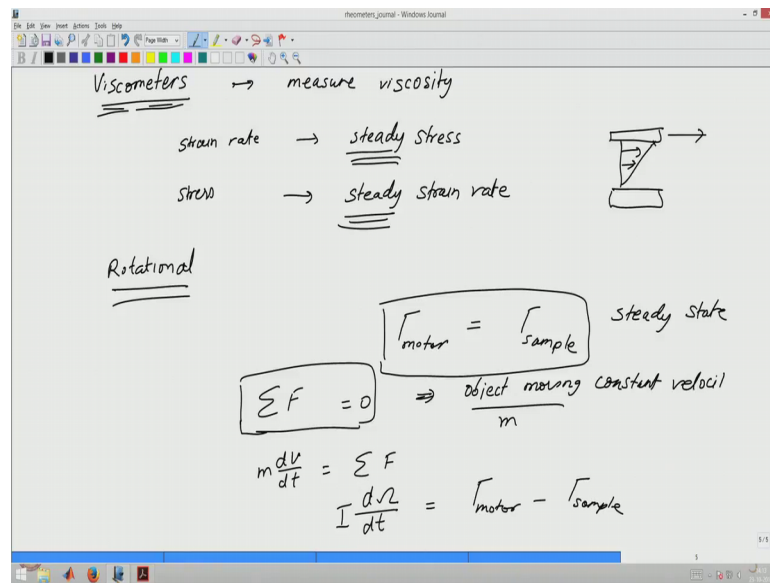 rheometers_journal - Windows Journal
File Edit View Insert Actions Tools Help
Page Width
B I
Viscometers → measure viscosity
strain rate → steady stress
stress → steady strain rate
Rotational
Γmotor = Γsample steady state
ΣF = 0 ⇒ object moving constant velocit
m
m dv/dt = ΣF
I dΩ/dt = Γmotor - Γsample
5/5
5